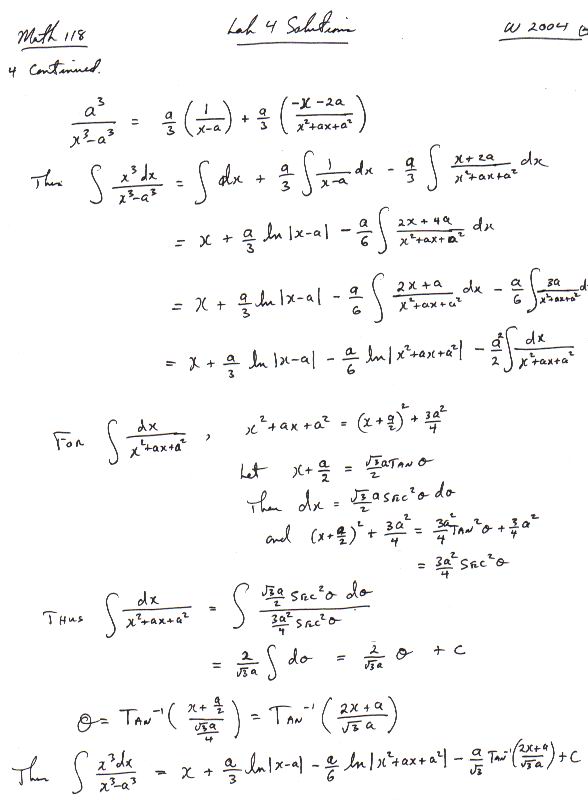 Math 118 Lab 4 Solutions W 2004
4 Continued.
a³/(x³-a³) = a/3 (1/(x-a)) + a/3 ((-x-2a)/(x²+ax+a²))
Then ∫ x³dx/(x³-a³) = ∫ dx + a/3 ∫ 1/(x-a) dx - a/3 ∫ (x+2a)/(x²+ax+a²) dx
= x + a/3 ln|x-a| - a/6 ∫ (2x+4a)/(x²+ax+a²) dx
= x + a/3 ln|x-a| - a/6 ∫ (2x+a)/(x²+ax+a²) dx - a/6 ∫ 3a/(x²+ax+a²) d
= x + a/3 ln|x-a| - a/6 ln|x²+ax+a²| - a²/2 ∫ dx/(x²+ax+a²)
For ∫ dx/(x²+ax+a²) , x²+ax+a² = (x+a/2)² + 3a²/4
Let x+a/2 = √3/2 a TAN θ
Then dx = √3/2 a SEC²θ dθ
and (x+a/2)² + 3a²/4 = 3a²/4 TAN²θ + 3/4 a²
= 3a²/4 SEC²θ
THUS ∫ dx/(x²+ax+a²) = ∫ (√3a/2 SEC²θ dθ)/(3a²/4 SEC²θ)
= 2/(√3a) ∫ dθ = 2/(√3a) θ + C
θ = TAN⁻¹((x+a/2)/(√3a/4)) = TAN⁻¹((2x+a)/(√3a))
Then ∫ x³dx/(x³-a³) = x + a/3 ln|x-a| - a/6 ln|x²+ax+a²| - a/√3 TAN⁻¹((2x+a)/(√3a)) + C